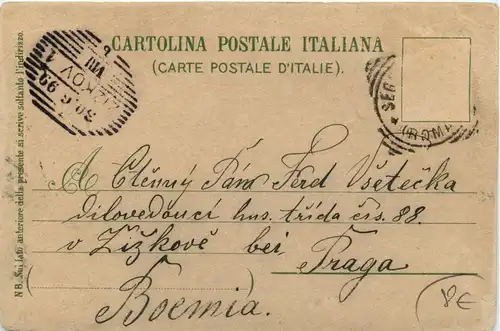 CARTOLINA POSTALE ITALIANA
(CARTE POSTALE D'ITALIE).
ŽIŽKOV 1
30.6.99
VII
SEG
(ROMA
N B. Sul lato anteriore della presente si scrive soltanto l'indirizzo.
A Ctěnný Pán Ferd Všetečka
dílovedoucí hus. třída čís. 88.
v Žižkově bei
Praga
Boemia.
8€